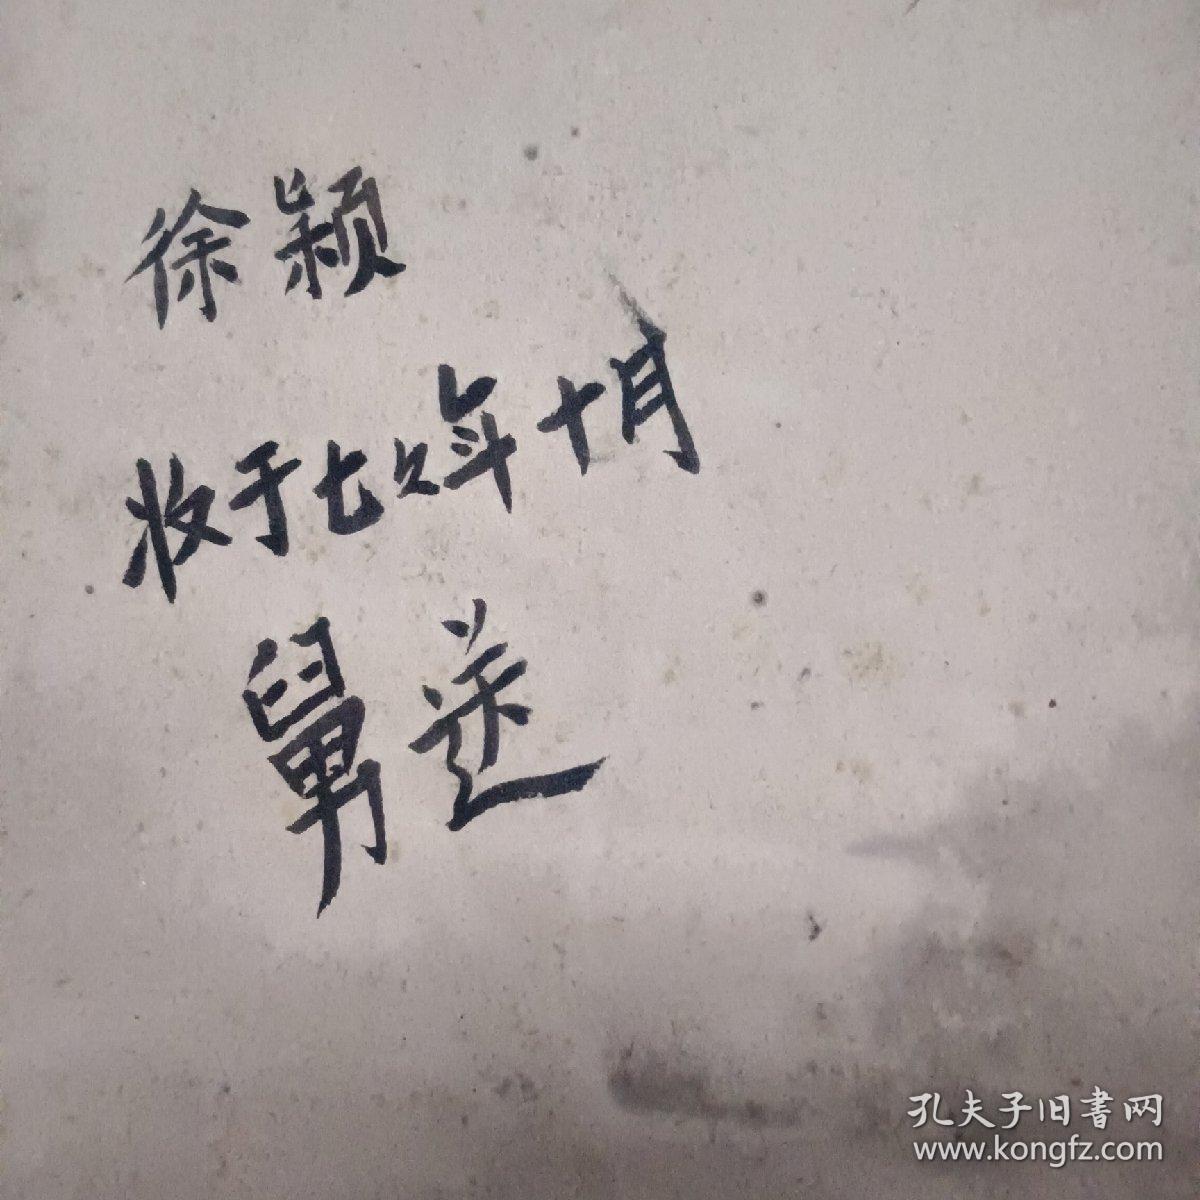 徐颖
收于七久年十月
舅送
孔夫子旧書网
www.kongfz.com